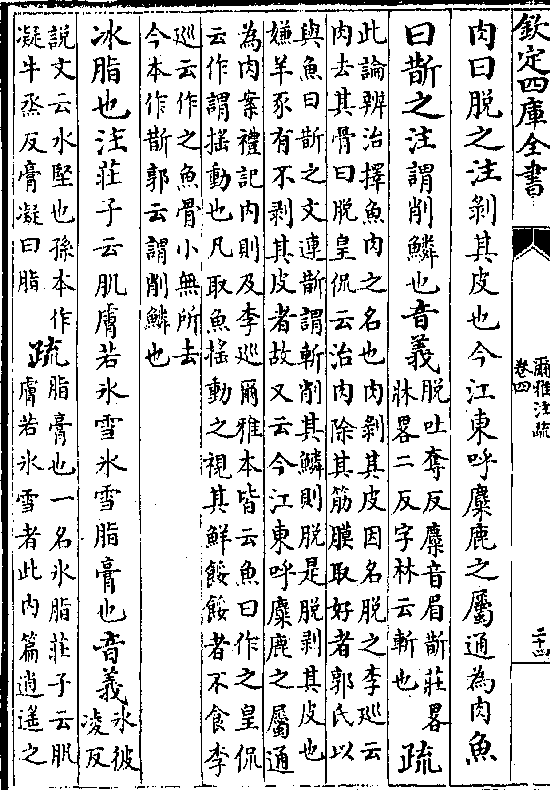 欽定四庫全書
爾雅注疏
卷四
二十四
肉曰脫之注剝其皮也今江東呼麋鹿之屬通為肉魚
曰斮之注謂削鱗也音義脫吐奪反麋音眉斮莊畧
牀畧二反字林云斬也疏
此論辨治擇魚肉之名也肉剝其皮因名脫之李廵云
肉去其骨曰脫皇侃云治肉除其筋膜取好者郭氏以
與魚曰斮之文連斮謂斬削其鱗則脫是脫剝其皮也
嫌羊豕有不剥其皮者故又云今江東呼麋鹿之屬通
為肉案禮記内則及李廵爾雅本皆云魚曰作之皇侃
云作謂揺動也凡取魚揺動之視其鮮餒餒者不食李
廵云作之魚骨小無所去
今本作斮郭云謂削鱗也
冰脂也注莊子云肌膚若氷雪氷雪脂膏也音義氷彼
凌反
說文云水堅也孫本作
凝牛烝反膏凝曰脂疏脂膏也一名氷脂莊子云肌
膚若氷雪者此内篇逍遥之